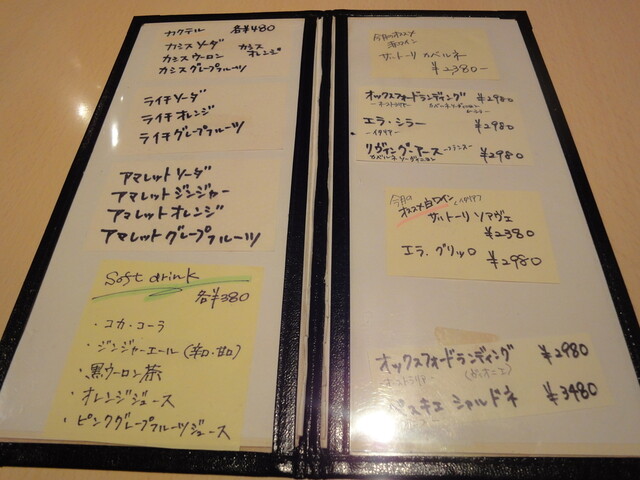 カクテル 各¥480
カシス ソーダ カシス
カシス ウーロン オレンジ
カシス グレープフルーツ
ライチ ソーダ
ライチ オレンジ
ライチ グレープフルーツ
アマレット ソーダ
アマレット ジンジャー
アマレット オレンジ
アマレット グレープフルーツ
Soft drink
各¥380
・コカ・コーラ
・ジンジャーエール(辛口・甘口)
・黒ウーロン茶
・オレンジジュース
・ピンクグレープフルーツジュース
今月のオススメ
赤ワイン
サットーリ カベルネ
¥2380-
オックスフォードランディング ¥2980
ーオーストラリアー
エラ・シラー ¥2980
ーイタリアー
リヴィング・アース ーフランスー ¥2980
カベルネ ソーヴィニヨン
今月の
オススメ白ワイン
サットーリ ソアヴェ
¥2380
エラ. グリッロ ¥2980
オックスフォードランディング ¥2980
オーストラリア
ペスキエ シャルドネ ¥3480